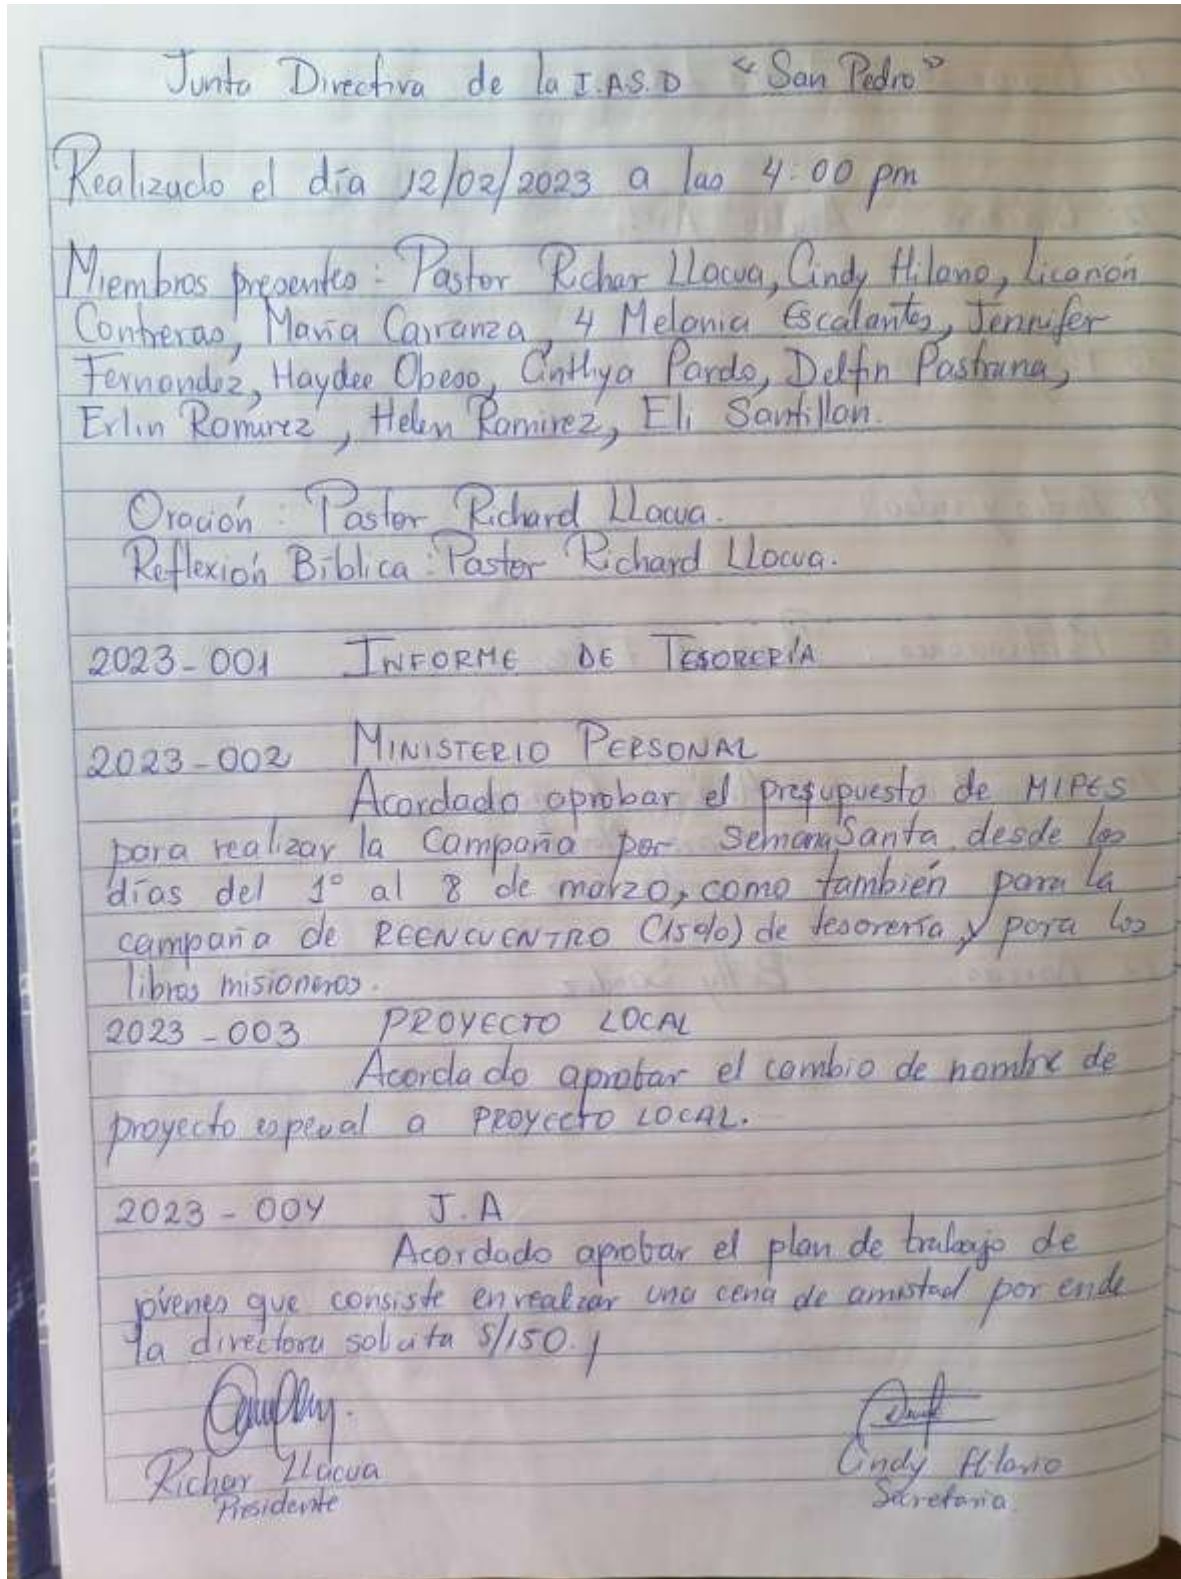 Junta Directiva de la I.A.S.D "San Pedro"
Realizado el día 12/02/2023 a las 4:00 pm
Miembros presentes: Pastor Richar Llacua, Cindy Hilario, Licanón
Contreras, María Carranza, 4 Melania Escalantes, Jennifer
Fernandez, Haydee Obeso, Cinthya Pardo, Delfin Pastrana,
Erlin Ramirez, Helen Ramirez, Eli Santillan.
Oración: Pastor Richard Llacua.
Reflexión Bíblica: Pastor Richard Llacua.
2023-001 INFORME DE TESORERÍA
2023-002 MINISTERIO PERSONAL
Acordado aprobar el presupuesto de MIPES
para realizar la Campaña por Semana Santa desde los
días del 1° al 8 de marzo, como también para la
campaña de REENCUENTRO (15%) de tesorería y para los
libros misioneros.
2023-003 PROYECTO LOCAL
Acordado aprobar el cambio de nombre de
proyecto especial a PROYECTO LOCAL.
2023-004 J.A
Acordado aprobar el plan de trabajo de
jóvenes que consiste en realizar una cena de amistad por ende
la directora solicita S/150.
Richar Llacua
Presidente
Cindy Hilario
Secretaria